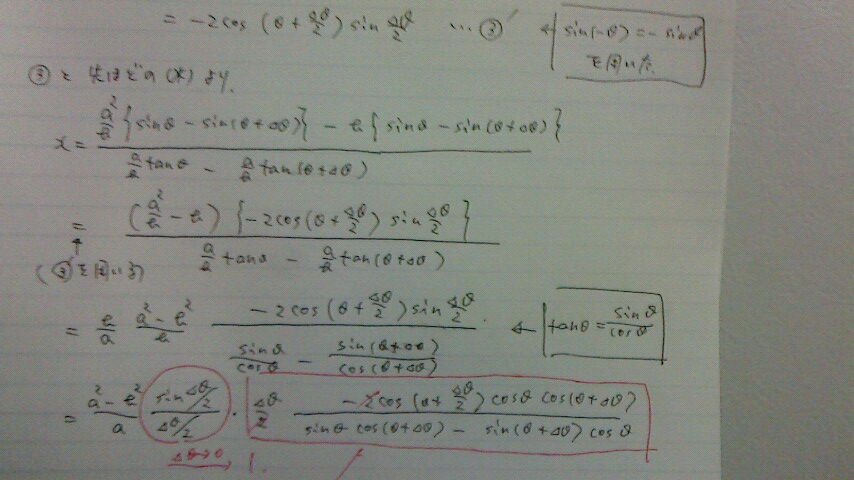 = -2cos (θ + Δθ/2) sin Δθ/2 … ③
← sin(-θ) = - sinθ
を用いた.
③と 先ほどの (*) より,
x = (a²/b {sinθ - sin(θ+Δθ)} - b {sinθ - sin(θ+Δθ)}) / (a/b tanθ - a/b tan(θ+Δθ))
= ((a²/b - b) {-2cos(θ+Δθ/2) sin Δθ/2}) / (a/b tanθ - a/b tan(θ+Δθ))
↑
(③を用いる)
= b/a · (a² - b²)/b · (-2cos(θ+Δθ/2) sin Δθ/2) / (sinθ/cosθ - sin(θ+Δθ)/cos(θ+Δθ)) ← tanθ = sinθ/cosθ
= (a² - b²)/a · (sin Δθ/2)/(Δθ/2) · Δθ/2 · (-2cos(θ+Δθ/2) cosθ cos(θ+Δθ)) / (sinθ cos(θ+Δθ) - sin(θ+Δθ) cosθ)
Δθ→0 → 1.